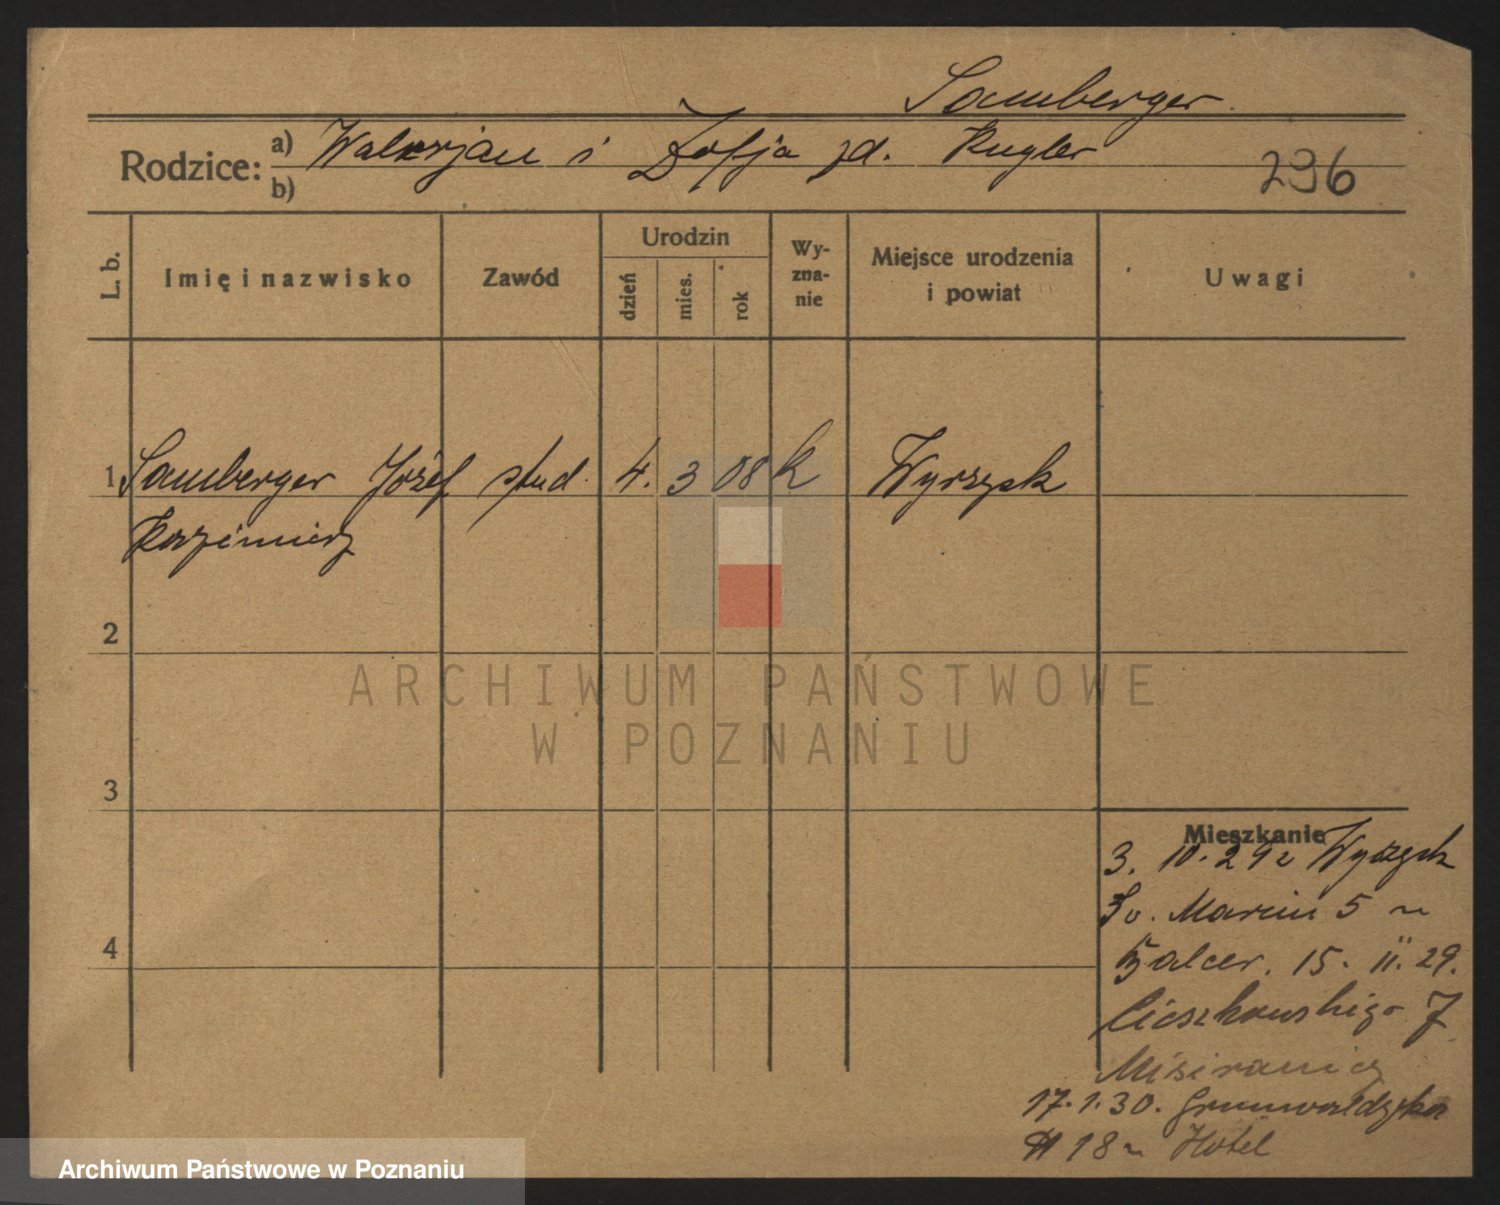 Samberger.
Rodzice: a) Walerjan i Zofja zd. Kugler
b)
296
L. b. Imię i nazwisko Zawód Urodzin dzień mies. rok Wy-zna-nie Miejsce urodzenia i powiat Uwagi
1 Samberger Józef stud. 4. 3 08 k Wyrzysk
Kazimierz
2
3
4
Mieszkanie
3. 10. 29 z Wyrzysk
Św. Marcin 5
Balcer. 15. 11. 29.
Cieszkowskiego 7
17. 1. 30. Grunwaldzka
18 Hotel
ARCHIWUM PAŃSTWOWE
W POZNANIU
Archiwum Państwowe w Poznaniu